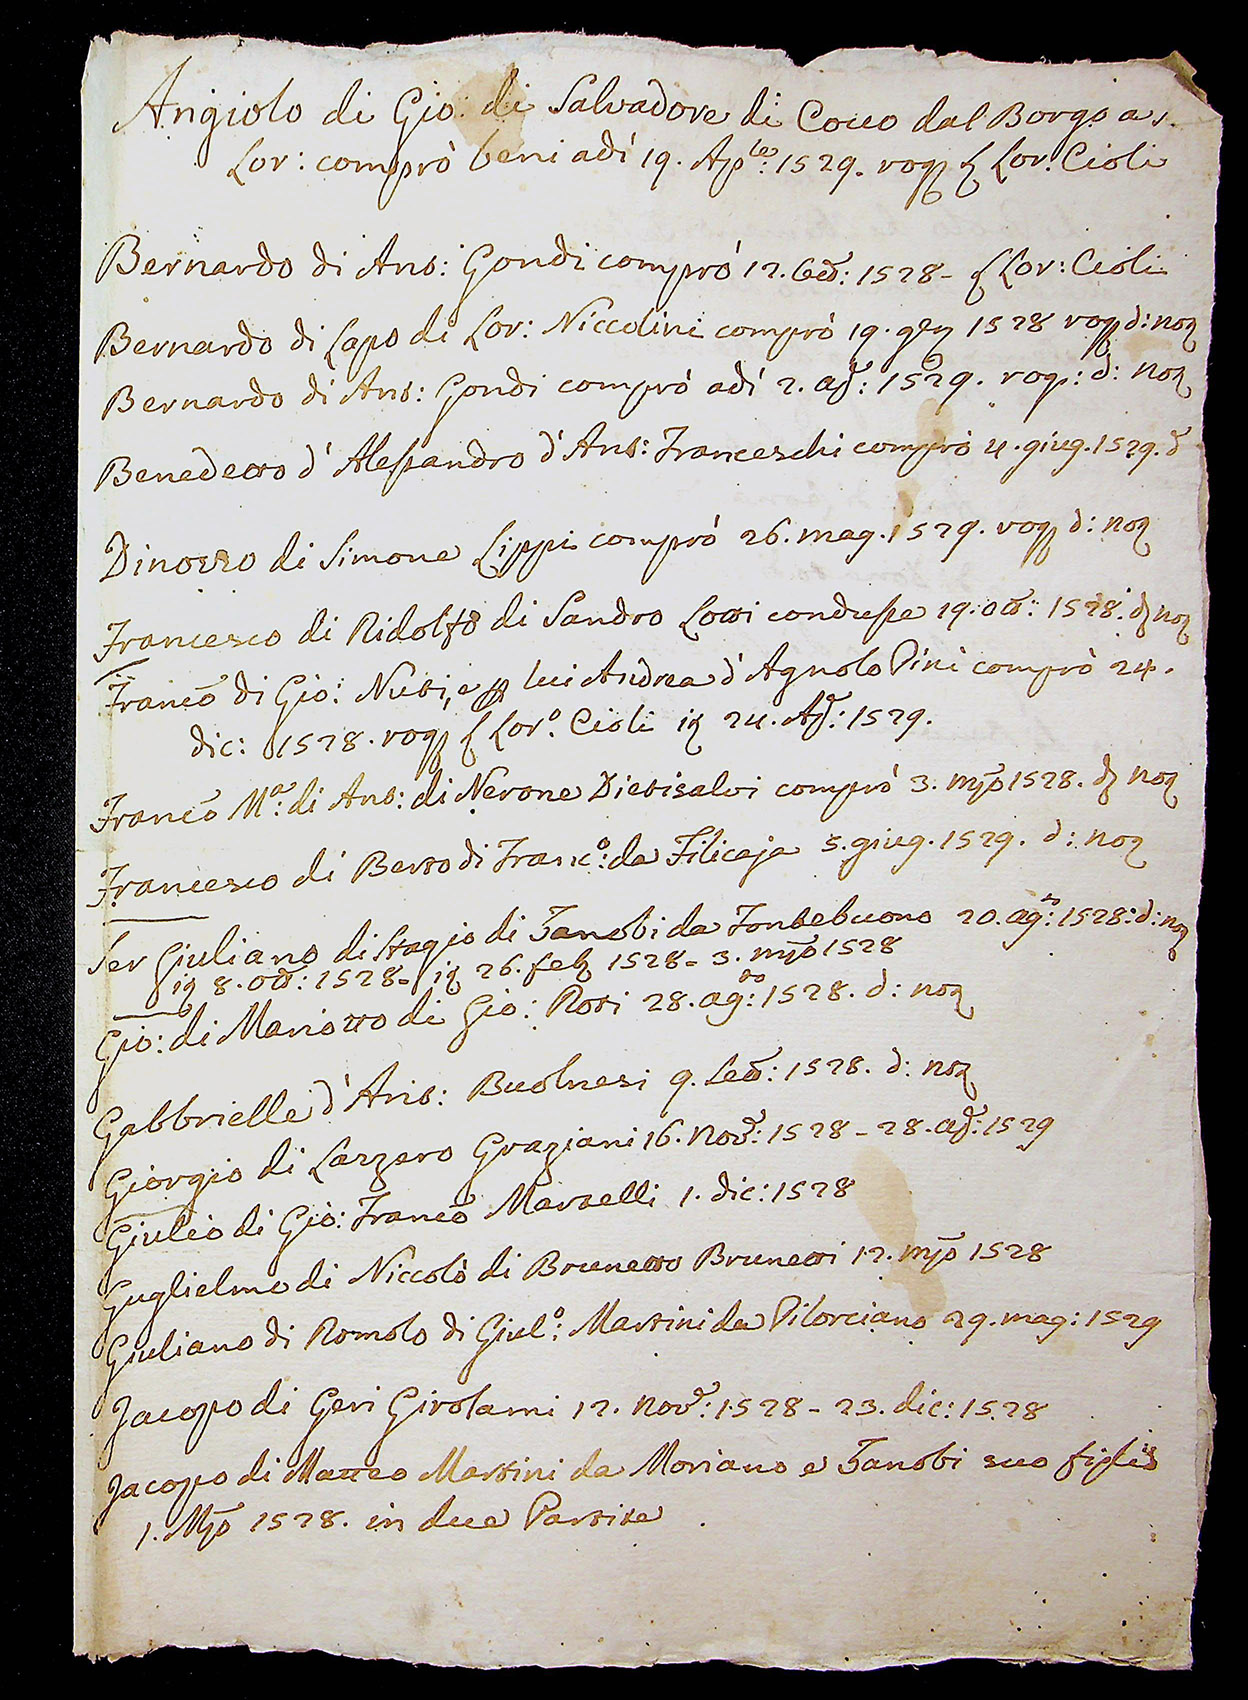 Angiolo di Gio: di Salvadore di Cocco dal Borgo a s.
Lor: comprò beni adi 19. Ap.le 1529. rog. Lor. Cioli
Bernardo di Ant: Gondi comprò 12. 1528 - Lor: Cioli
Bernardo di Lapo di Lor: Niccolini comprò 19. gen 1528 rog d: not
Bernardo di Ant: Gondi comprò adì 2. ap: 1529. rog: d: not
Benedetto d' Alessandro d' Ant: Franceschi comprò 4. giug. 1529. d
Dinozzo di Simone Lippi comprò 26. mag. 1529. rog d: not
Francesco di Ridolfo di Sandro Lotti condusse 19. ott: 1528. d not
Franco di Gio: Nuti, e p lui Andrea d' Agnolo Pini comprò 24.
dic: 1528. rog Lor.o Cioli 24. Ap: 1529.
Franco M.a di Ant: di Nerone Dietisalvi comprò 3. mzo 1528. d not
Francesco di Berto di Franc.o: da Filicaja 5. giug. 1529. d: not
Ser Giuliano di Stagio di Zanobi da Fontebuono 20. ag.to: 1528: d: not
8. ott: 1528 - 26. feb 1528 - 3. mzo 1528
Gio: di Mariotto di Gio: Roti 28. ag.to: 1528. d: not
Gabbrielle d' Ant: Buolnesi 9. 1528. d: not
Giorgio di Lazzero Graziani 16. nov: 1528 - 28. ap: 1529
Giulio di Gio: Franco Martelli 1. dic: 1528
Guglielmo di Niccolò di Brunetto Brunetti 12. mzo 1528
Giuliano di Romolo di Giul.o: Martini da Pilorciano 29. mag: 1529
Jacopo di Geri Girolami 12. nov: 1528 - 23. dic: 1528
Jacopo di Matteo Martini da Moriano e Zanobi suo figlio
1. Mzo 1528. in due Partite